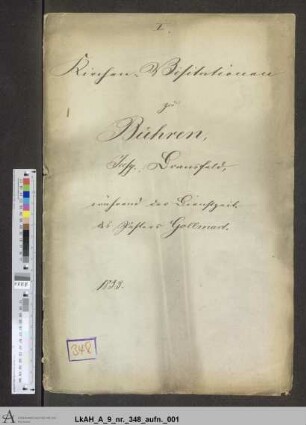 I.
Kirchen-Visitationen
zu
Bühren,
Insp. Dransfeld,
während der Dienstzeit
des Pastors Gollmart.
1833.
348
LkAH_A_9_nr._348_aufn._001